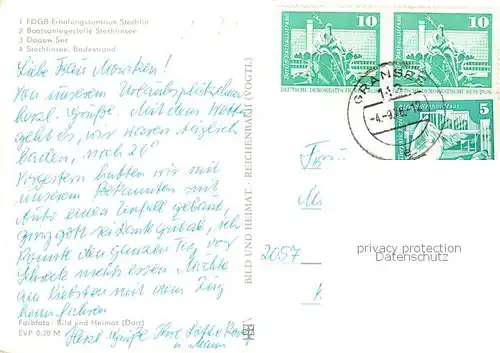 1 FDGB-Erholungszentrum Stechlin
2 Bootsanlegestelle Stechlinsee
3 Dagow See
4 Stechlinsee, Badestrand
Liebe Frau
Von unserem Urlaubsplätzchen
herzl. Grüße. Mit dem Wetter
geht es, wir waren tägl.
baden, noch 20°
Vorgestern hatten wir mit
unserem Bekannten mit
Auto einen Unfall gebaut,
ging gott sei dank gut ab, ich
konnte den ganzen Tag, vor
Schreck nichts essen Möchte
am liebsten mit dem Zug
heimfahren
Farbfoto: Bild und Heimat (Darr)
EVP 0,20 M
Herzl. Grüße Ihre
u. Mann
BILD UND HEIMAT · REICHENBACH (VOGTL)
10
10
5
GRANSEE
2057
privacy protection
Datenschutz